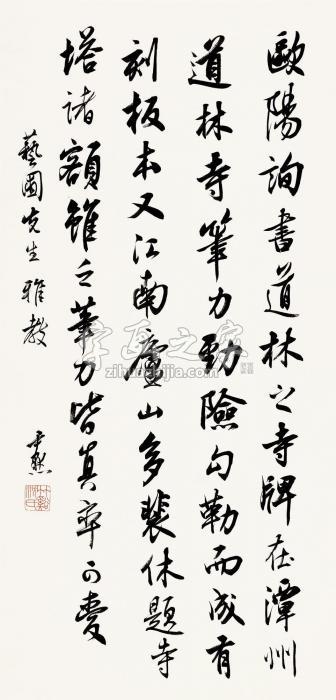 歐陽詢書道林之寺牌在潭州
道林寺筆力勁險勾勒而成有
刻板本又江南廬山多裴休題寺
塔諸額雖乏筆力皆真率可愛
藝圃先生雅教
尹默
字画之家
zihuazhijia.com